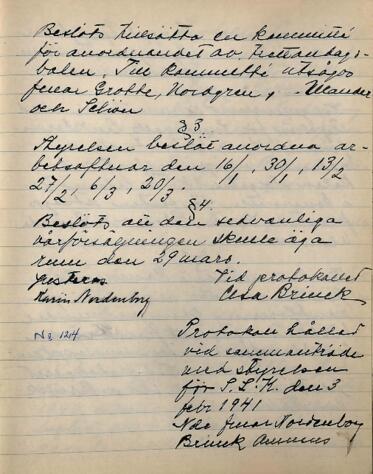 Beslöts tillsätta en kommitté
för anordnandet av trettondags-
balen. Till kommitté utsågos
fruar Grotte, Nordgren,
och Schön
§ 3.
Styrelsen beslöt anordna ar-
betsaftnar den 16/1, 30/1, 13/2
27/2, 6/3, 20/3.
§ 4.
Beslöts att den sedvanliga
vårförsäljningen skulle äga
rum den 29 mars.
Justeras Vid protokollet
Karin Nordenborg Elsa Brinck
No 124
Protokoll hållet
vid sammanträde
med styrelsen
för S.L.K. den 3
febr 1941
Nde fruar Nordenborg
Brinck